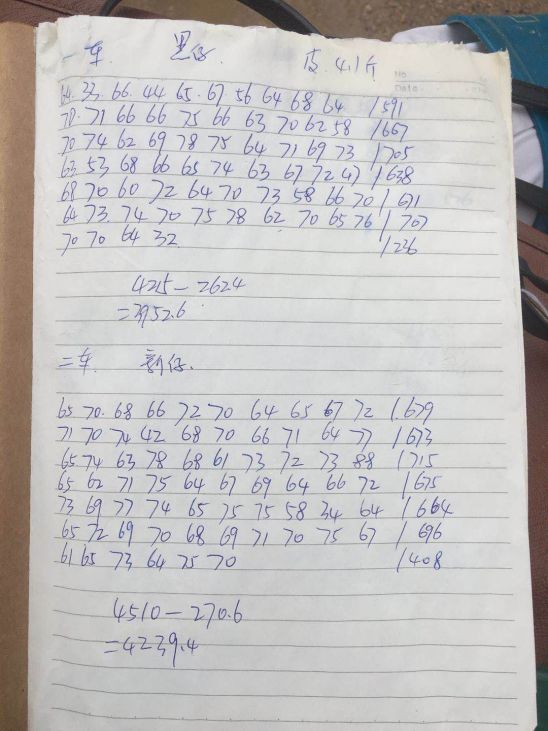 一车. 黑仔 皮 4.1斤
No
Date
64. 33. 66. 44 65. 67. 56 64 68 64 /591
78. 71 66 66 75 66 63 70 62 58 /667
70 74 62 69 78 75 64 71 69 73 /705
63 53 68 66 65 74 63 67 72 47 /638
68 70 60 72 64 70 73 58 66 70 /671
64 73. 74 70 75 78 62 70 65 76 /707
70 70 64 32 /236
4215-262.4
=3952.6
二车. 新仔.
65 70. 68 66 72 70 64 65 67 72 /679
71 70 74 42 68 70 66 71 64 77 /673
65 74 63 78 68 61 73 72 73 88 /715
65 62 71 75 64 67 69 64 66 72 /675
73 69 77 74 65 75 75 58 34 64 /664
65 72 69 70 68 69 71 70 75 67 /696
61 65 73 64 75 70 /408
4510-270.6
=4239.4